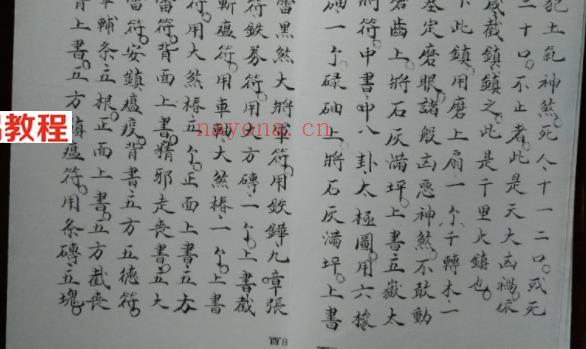 犯土氣神煞死人十一二口或死
二十口。不止者此是天大凶禍依
截鎮鎮之。此是千里大鎮也。
下此鎮。用磨上扇一个。千轉木一
定磨眼。諸般凶惡神煞。不敢動
齒上。將石灰滿坪上書五嶽太
將符。中書八卦太極圖。用六棱
碌碡一个。碌碡上將石灰滿坪上書
雷黑煞大將軍符。用鉄鏵九章張
符鉄券符。用大方磚一个。上書截
斬瘟符。用車軸大煞椿一个。上書
符。用大煞椿立个。正面上書五方
雷符。背面上書精邪走喪。書五大
符。安鎮瘟疫背書五方五德符。
車輔条立根。正面上書。五方截喪
背上書。五方鎮瘟符。用条磚五塊。
易教程
nayona.cn
酉8